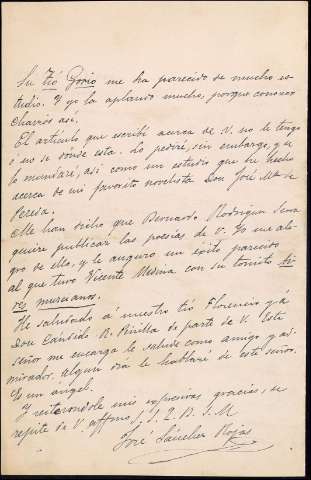 Su Tió Gorio me ha parecido de mucho es-
tudio. Y yo la aplaudo mucho, porque conozco
charros asi.
El artículo que escribí acerca de V. no le tengo
ó no se donde esta. Lo pediré, sin embargo, y se
lo mandaré, así como un estudio que he hecho
acerca de mi favorito novelista Don José Mª de
Pereda.
Me han dicho que Bernardo Rodriguez Serra
quiere publicar las poesías de V. Yo me ale-
gro de ello, y le auguro un éxito parecido
al que tuvo Vicente Medina con su tomito Ai-
res murcianos.
He saludado á nuestro tío Florencio y á
Don Cándido R. Pinilla de parte de V. Este
señor me encarga le salude como amigo y ad-
mirador. Algun día le hablaré de este señor.
Es un ángel.
Y reiterandole mis expresivas gracias, se
repite de V. affmo S. S. Q. B. S. M.
José Sánchez Rojas